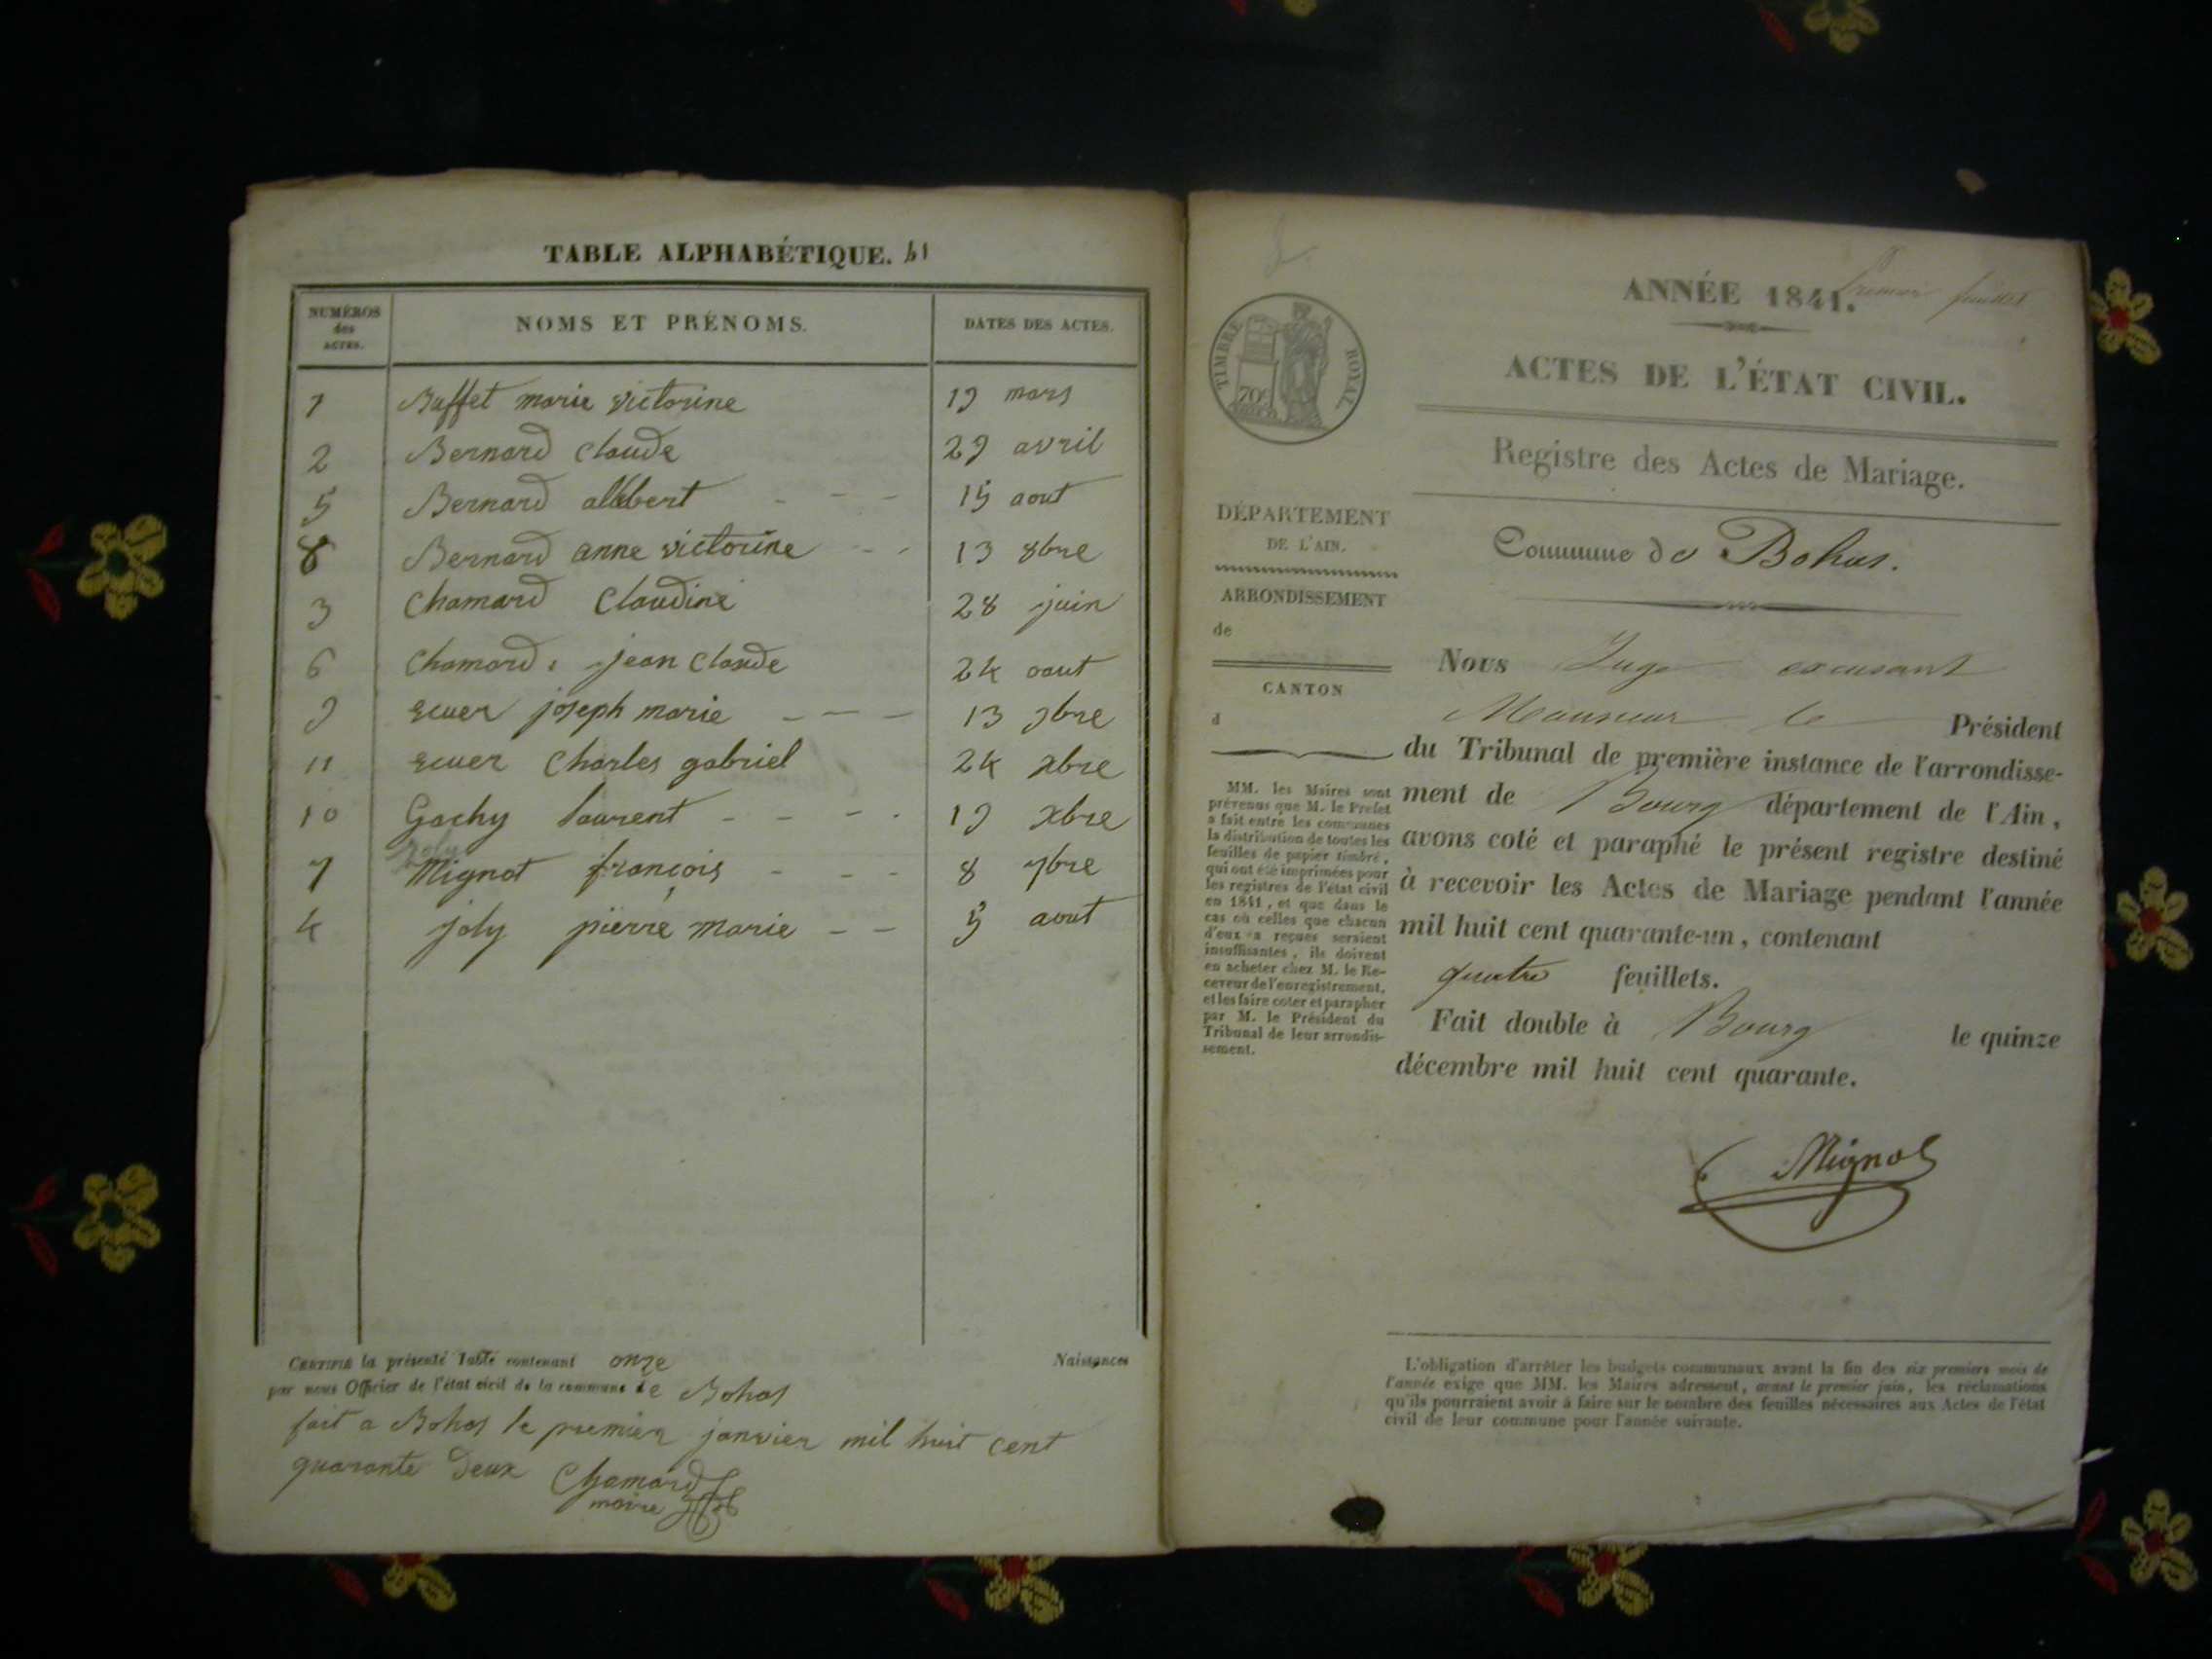 TABLE ALPHABÉTIQUE. 41
NUMÉROS
des
ACTES.
NOMS ET PRÉNOMS.
DATES DES ACTES.
1 Buffet marie victorine 19 mars
2 Bernard claude 29 avril
5 Bernard allbert - - - 15 aout
8 Bernard anne victorine - - 13 8bre
3 Chamard Claudine 28 juin
6 Chamard jean Claude 24 aout
9 ecuer joseph marie - - - 13 9bre
11 ecuer Charles gabriel 24 xbre
10 Gachy laurent - - - - 19 xbre
7 Mignot françois - - - 8 7bre
4 joly pierre marie - - 5 aout
CERTIFIÉ la présente Table contenant onze Naissances
par nous Officier de l'état civil de la commune de Bohas
fait a Bohas le premier janvier mil huit cent
quarante deux Chamard
maire
ANNÉE 1841. Premier feuillet
TIMBRE ROYAL
70c
ACTES DE L'ÉTAT CIVIL.
Registre des Actes de Mariage.
DÉPARTEMENT
DE L'AIN.
Commune de Bohas.
ARRONDISSEMENT
de
CANTON
d
MM. les Maires sont
prévenus que M. le Préfet
a fait entre les communes
la distribution de toutes les
feuilles de papier timbré,
qui ont été imprimées pour
les registres de l'état civil
en 1841, et que dans le
cas où celles que chacun
d'eux a reçues seraient
insuffisantes, ils doivent
en acheter chez M. le Re-
ceveur de l'enregistrement,
et les faire coter et parapher
par M. le Président du
Tribunal de leur arrondis-
sement.
Nous Juge excusant
Monsieur le Président
du Tribunal de première instance de l'arrondisse-
ment de Bourg département de l'Ain,
avons coté et paraphé le présent registre destiné
à recevoir les Actes de Mariage pendant l'année
mil huit cent quarante-un, contenant
quatre feuillets.
Fait double à Bourg le quinze
décembre mil huit cent quarante.
Mignot
L'obligation d'arrêter les budgets communaux avant la fin des six premiers mois de
l'année exige que MM. les Maires adressent, avant le premier juin, les réclamations
qu'ils pourraient avoir à faire sur le nombre des feuilles nécessaires aux Actes de l'état
civil de leur commune pour l'année suivante.